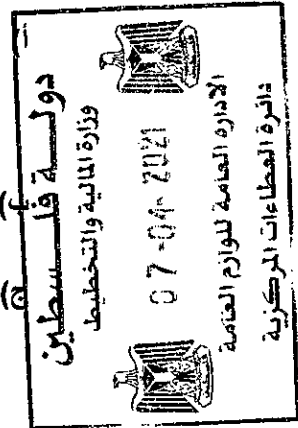 دولة فلسطين
وزارة المالية والتخطيط
07-04-2021
الادارة العامة للوازم العامة
دائرة العطاءات المركزية